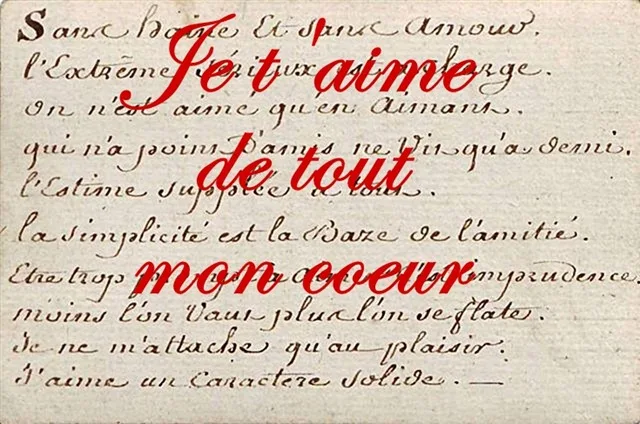 Je t'aime
de tout
mon coeur
Sans haine Et sans amour.
l'Extrême sérieux est a charge.
on n'est aime qu'en aimant.
qui n'a point D'amis ne vit qu'a demi.
l'Estime supplée a tout.
la simplicité est la Baze de l'amitié.
Etre trop imprudence.
moins l'on vaut plus l'on se flate.
Je ne m'attache qu'au plaisir.
J'aime un caractere solide. —